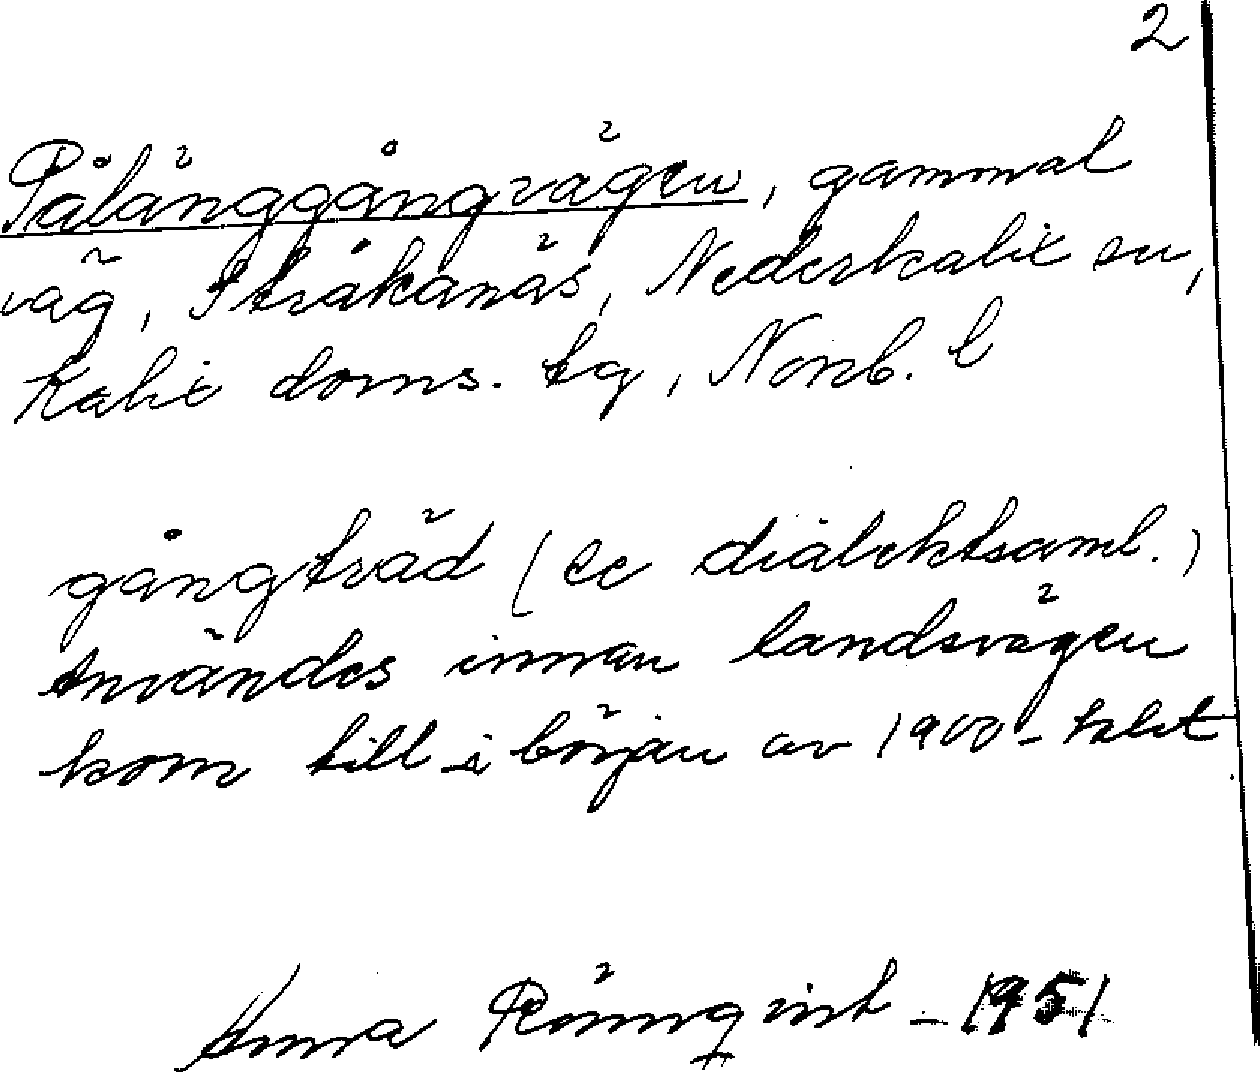 2
Pålänggångvägen, gammal
väg, Stråkanäs, Nederkalix sn,
Kalix doms. tg, Norrb. l
gångtråd (se dialektsaml.)
Användes innan landsvägen
kom till i början av 1900-talet
Anna Rönnqvist - 1951